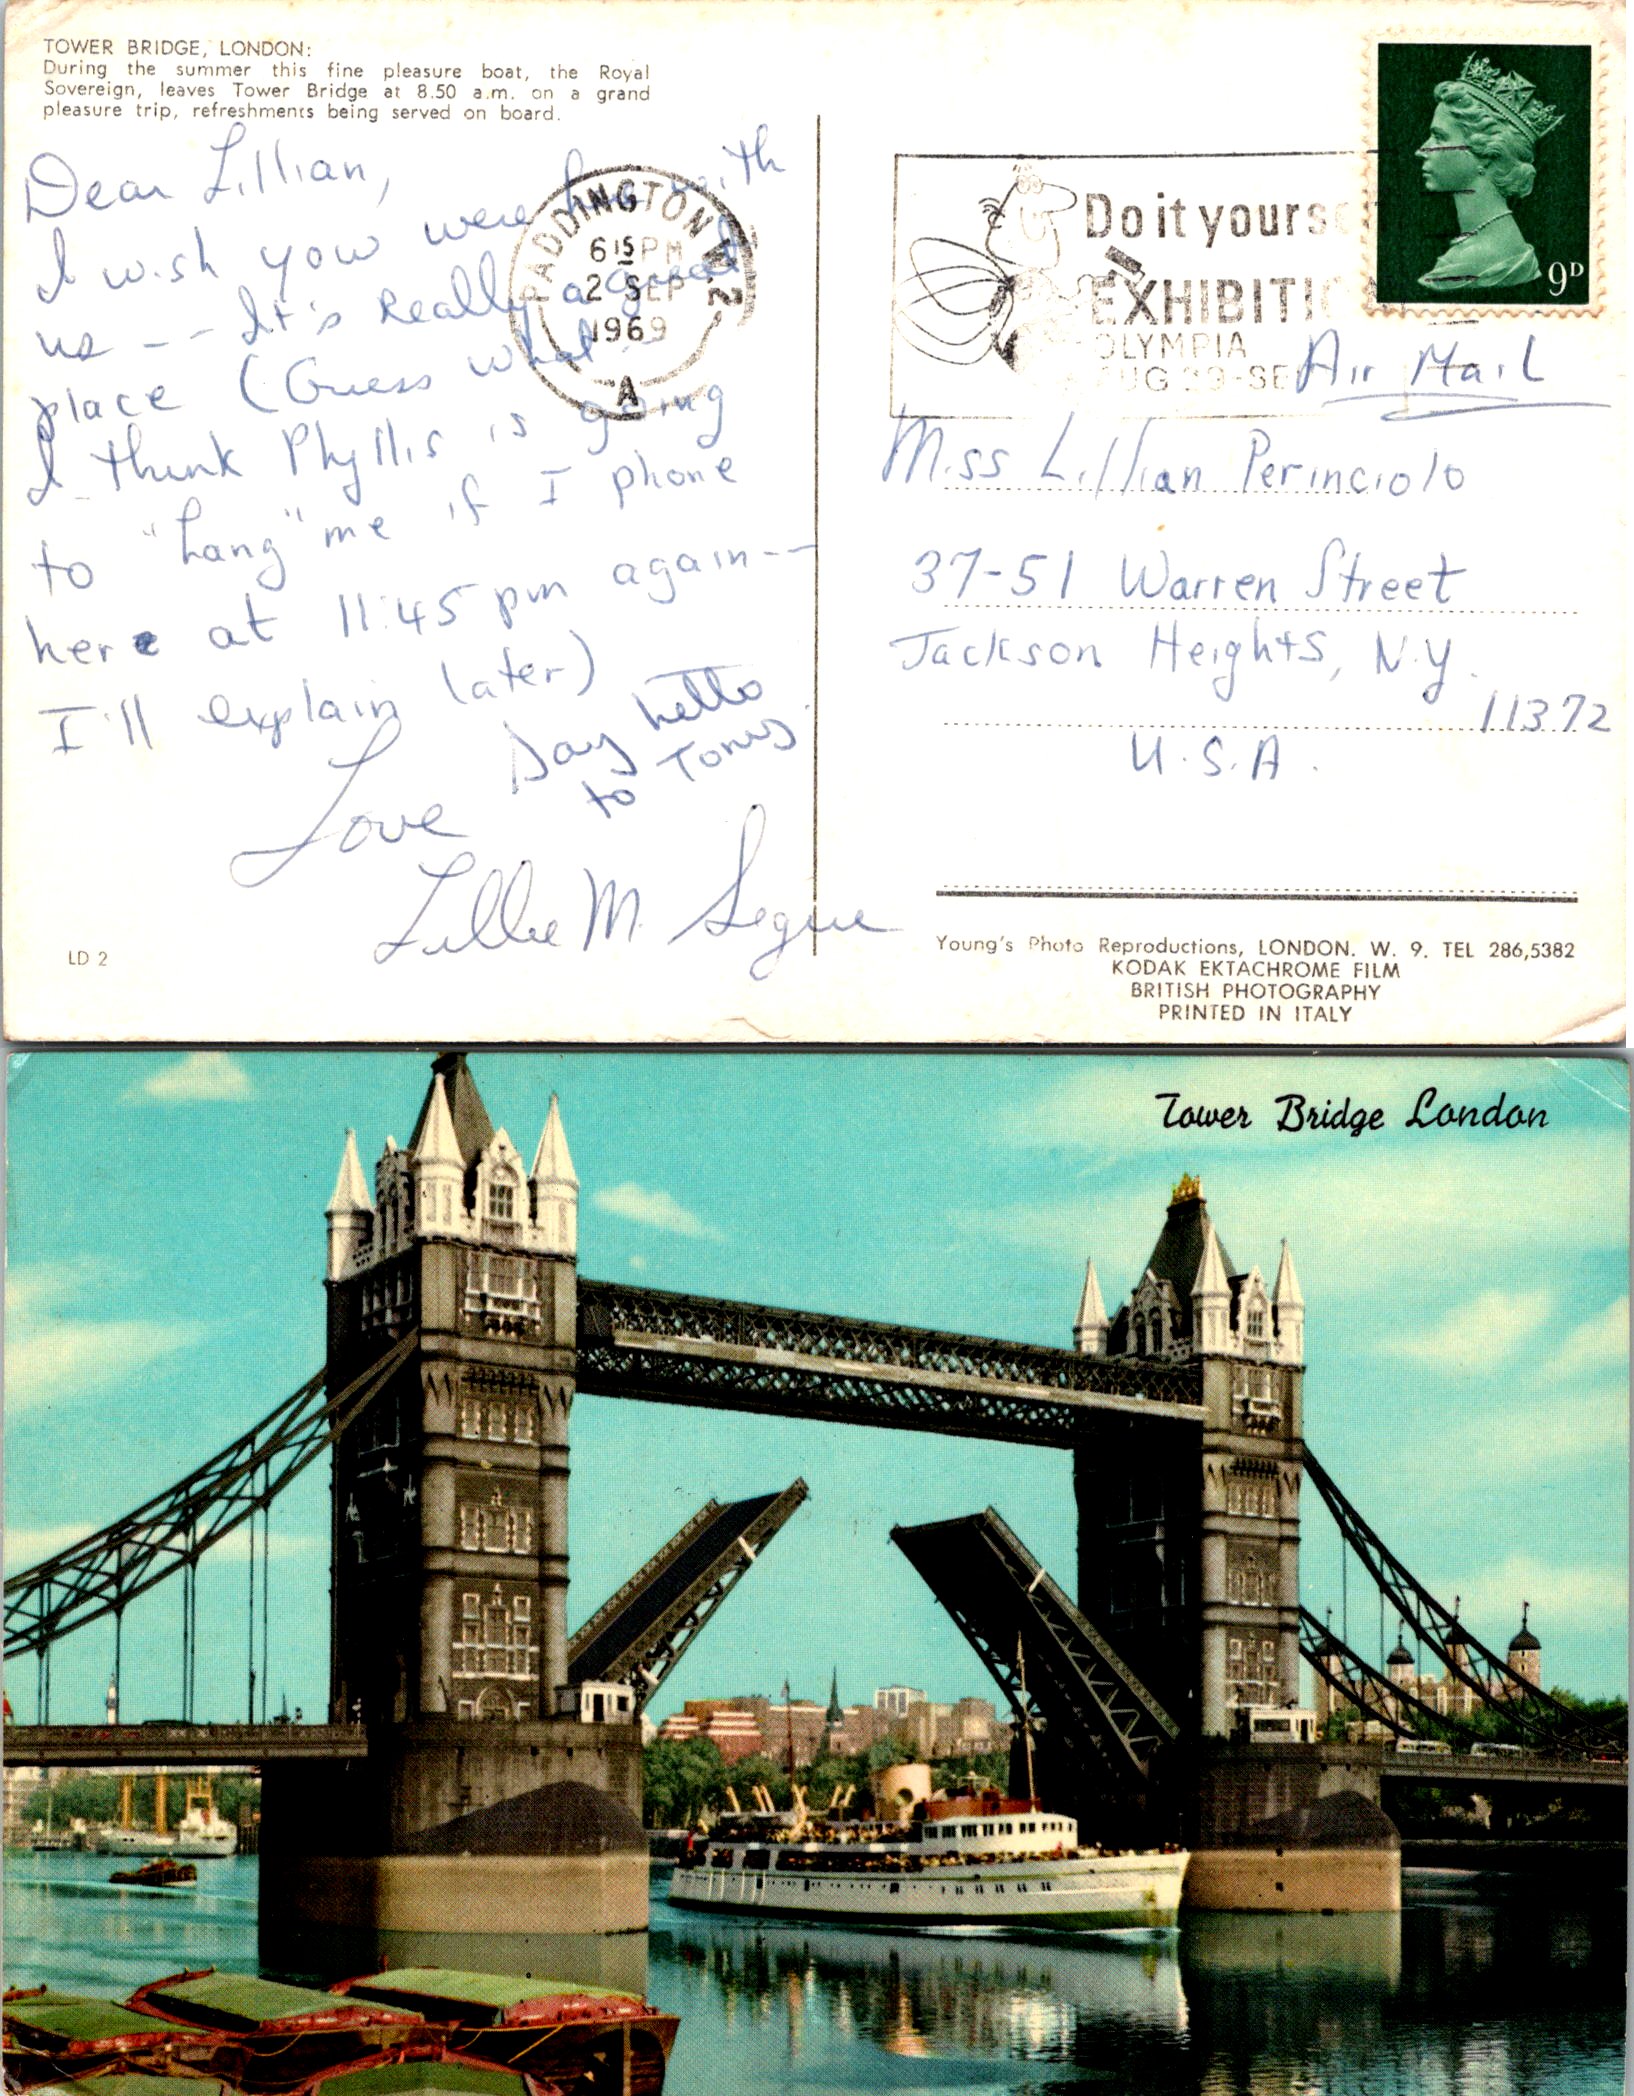 TOWER BRIDGE, LONDON:
During the summer this fine pleasure boat, the Royal
Sovereign, leaves Tower Bridge at 8.50 a.m. on a grand
pleasure trip, refreshments being served on board.
Dear Lillian,
I wish you were here with
us -- It's really a great
place (Guess what -
I think Phyllis is going
to "hang" me if I phone
here at 11:45 pm again--
I'll explain later)
Say hello
to Tony
Love
Lillie M.
LD 2
PADDINGTON W.2
6 15 PM
2 SEP
1969
A
Do it yourse
EXHIBITIO
OLYMPIA
AUG 29-SE
9D
Air Mail
Miss Lillian Perinciolo
37-51 Warren Street
Jackson Heights, N.Y.
11372
U.S.A.
Young's Photo Reproductions, LONDON. W. 9. TEL 286,5382
KODAK EKTACHROME FILM
BRITISH PHOTOGRAPHY
PRINTED IN ITALY
Tower Bridge London